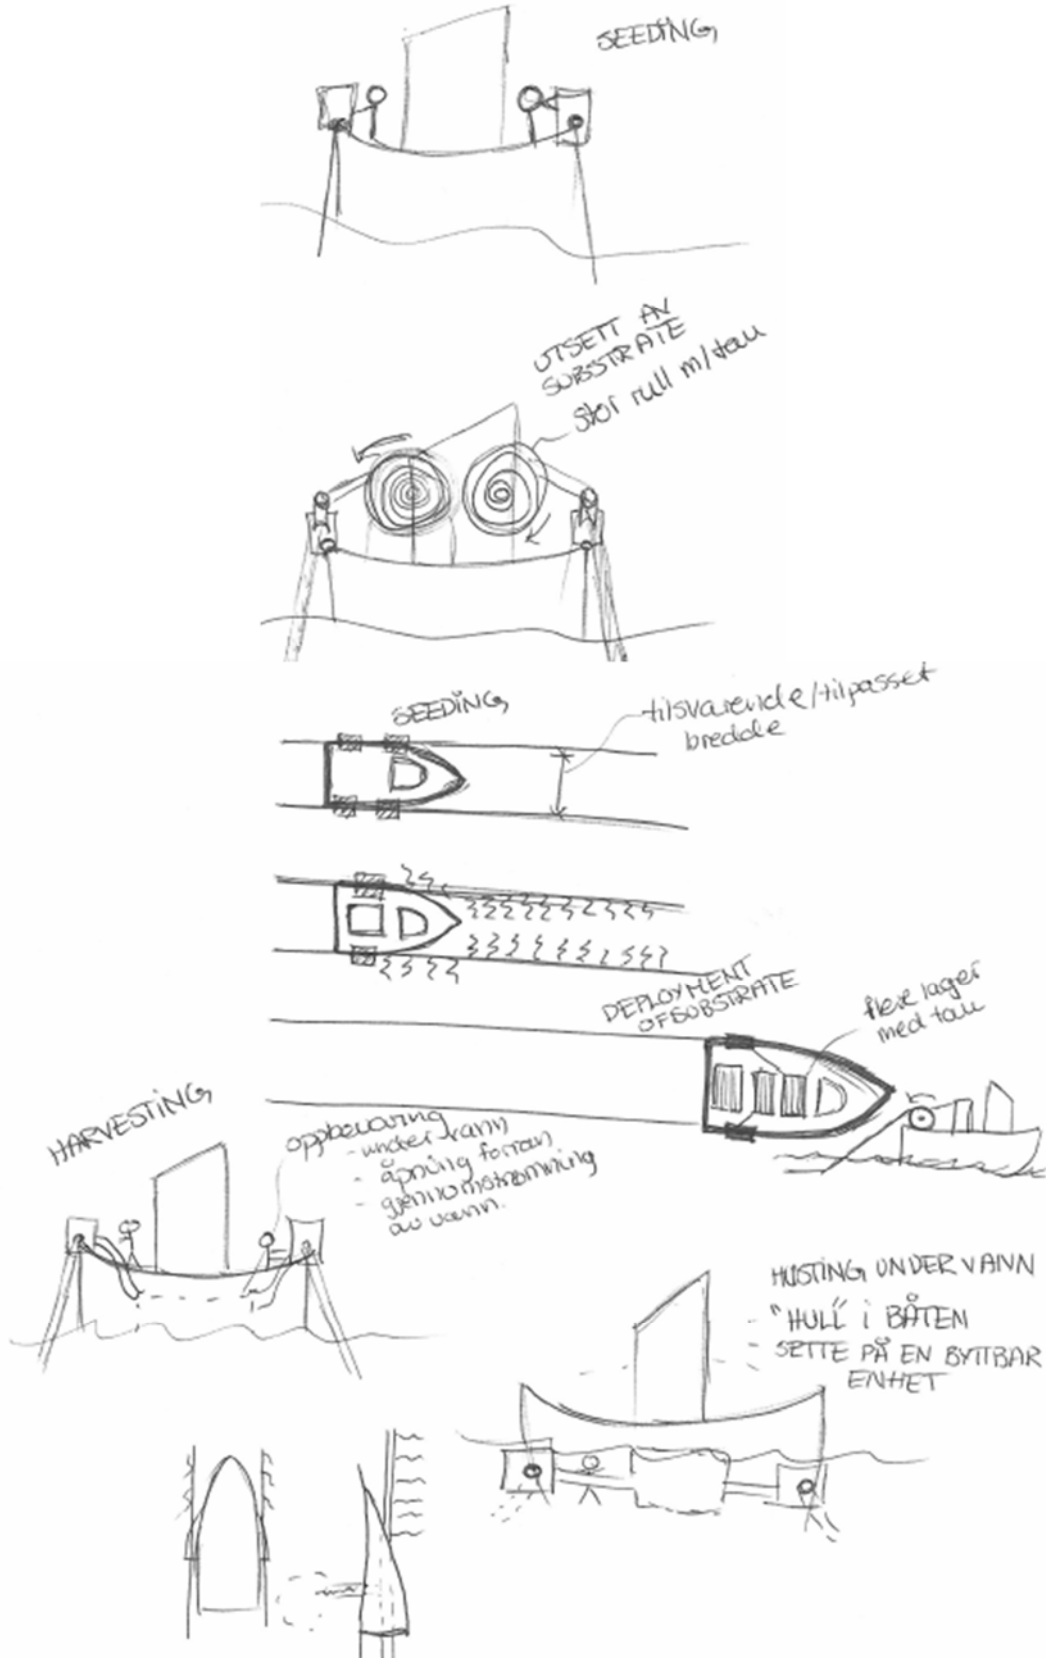 SEEDING
UTSETT AV
SUBSTRATE
stor rull m/tau
SEEDING
tilsvarende/tilpasset
bredde
DEPLOYMENT
OF SUBSTRATE
flere lager
med tau
HARVESTING
oppbevaring
- under vann
- åpning forran
- gjennomstrømning
av vann.
HØSTING UNDER VANN
- "HULL" i BÅTEN
- SETTE PÅ EN BYTTBAR
ENHET